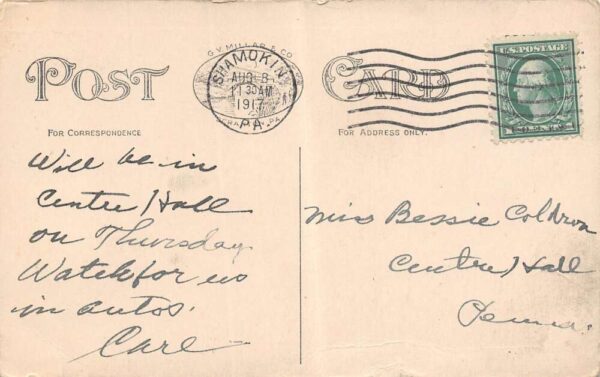 G.V. MILLAR & CO
POST CARD
SHAMOKIN
AUG 8
11 30 AM
1917
PA.
U.S. POSTAGE
FOR CORRESPONDENCE
FOR ADDRESS ONLY.
Will be in
Centre Hall
on Thursday
Watch for us
in autos.
Carl
Miss Bessie Coldron
Centre Hall
Penna.